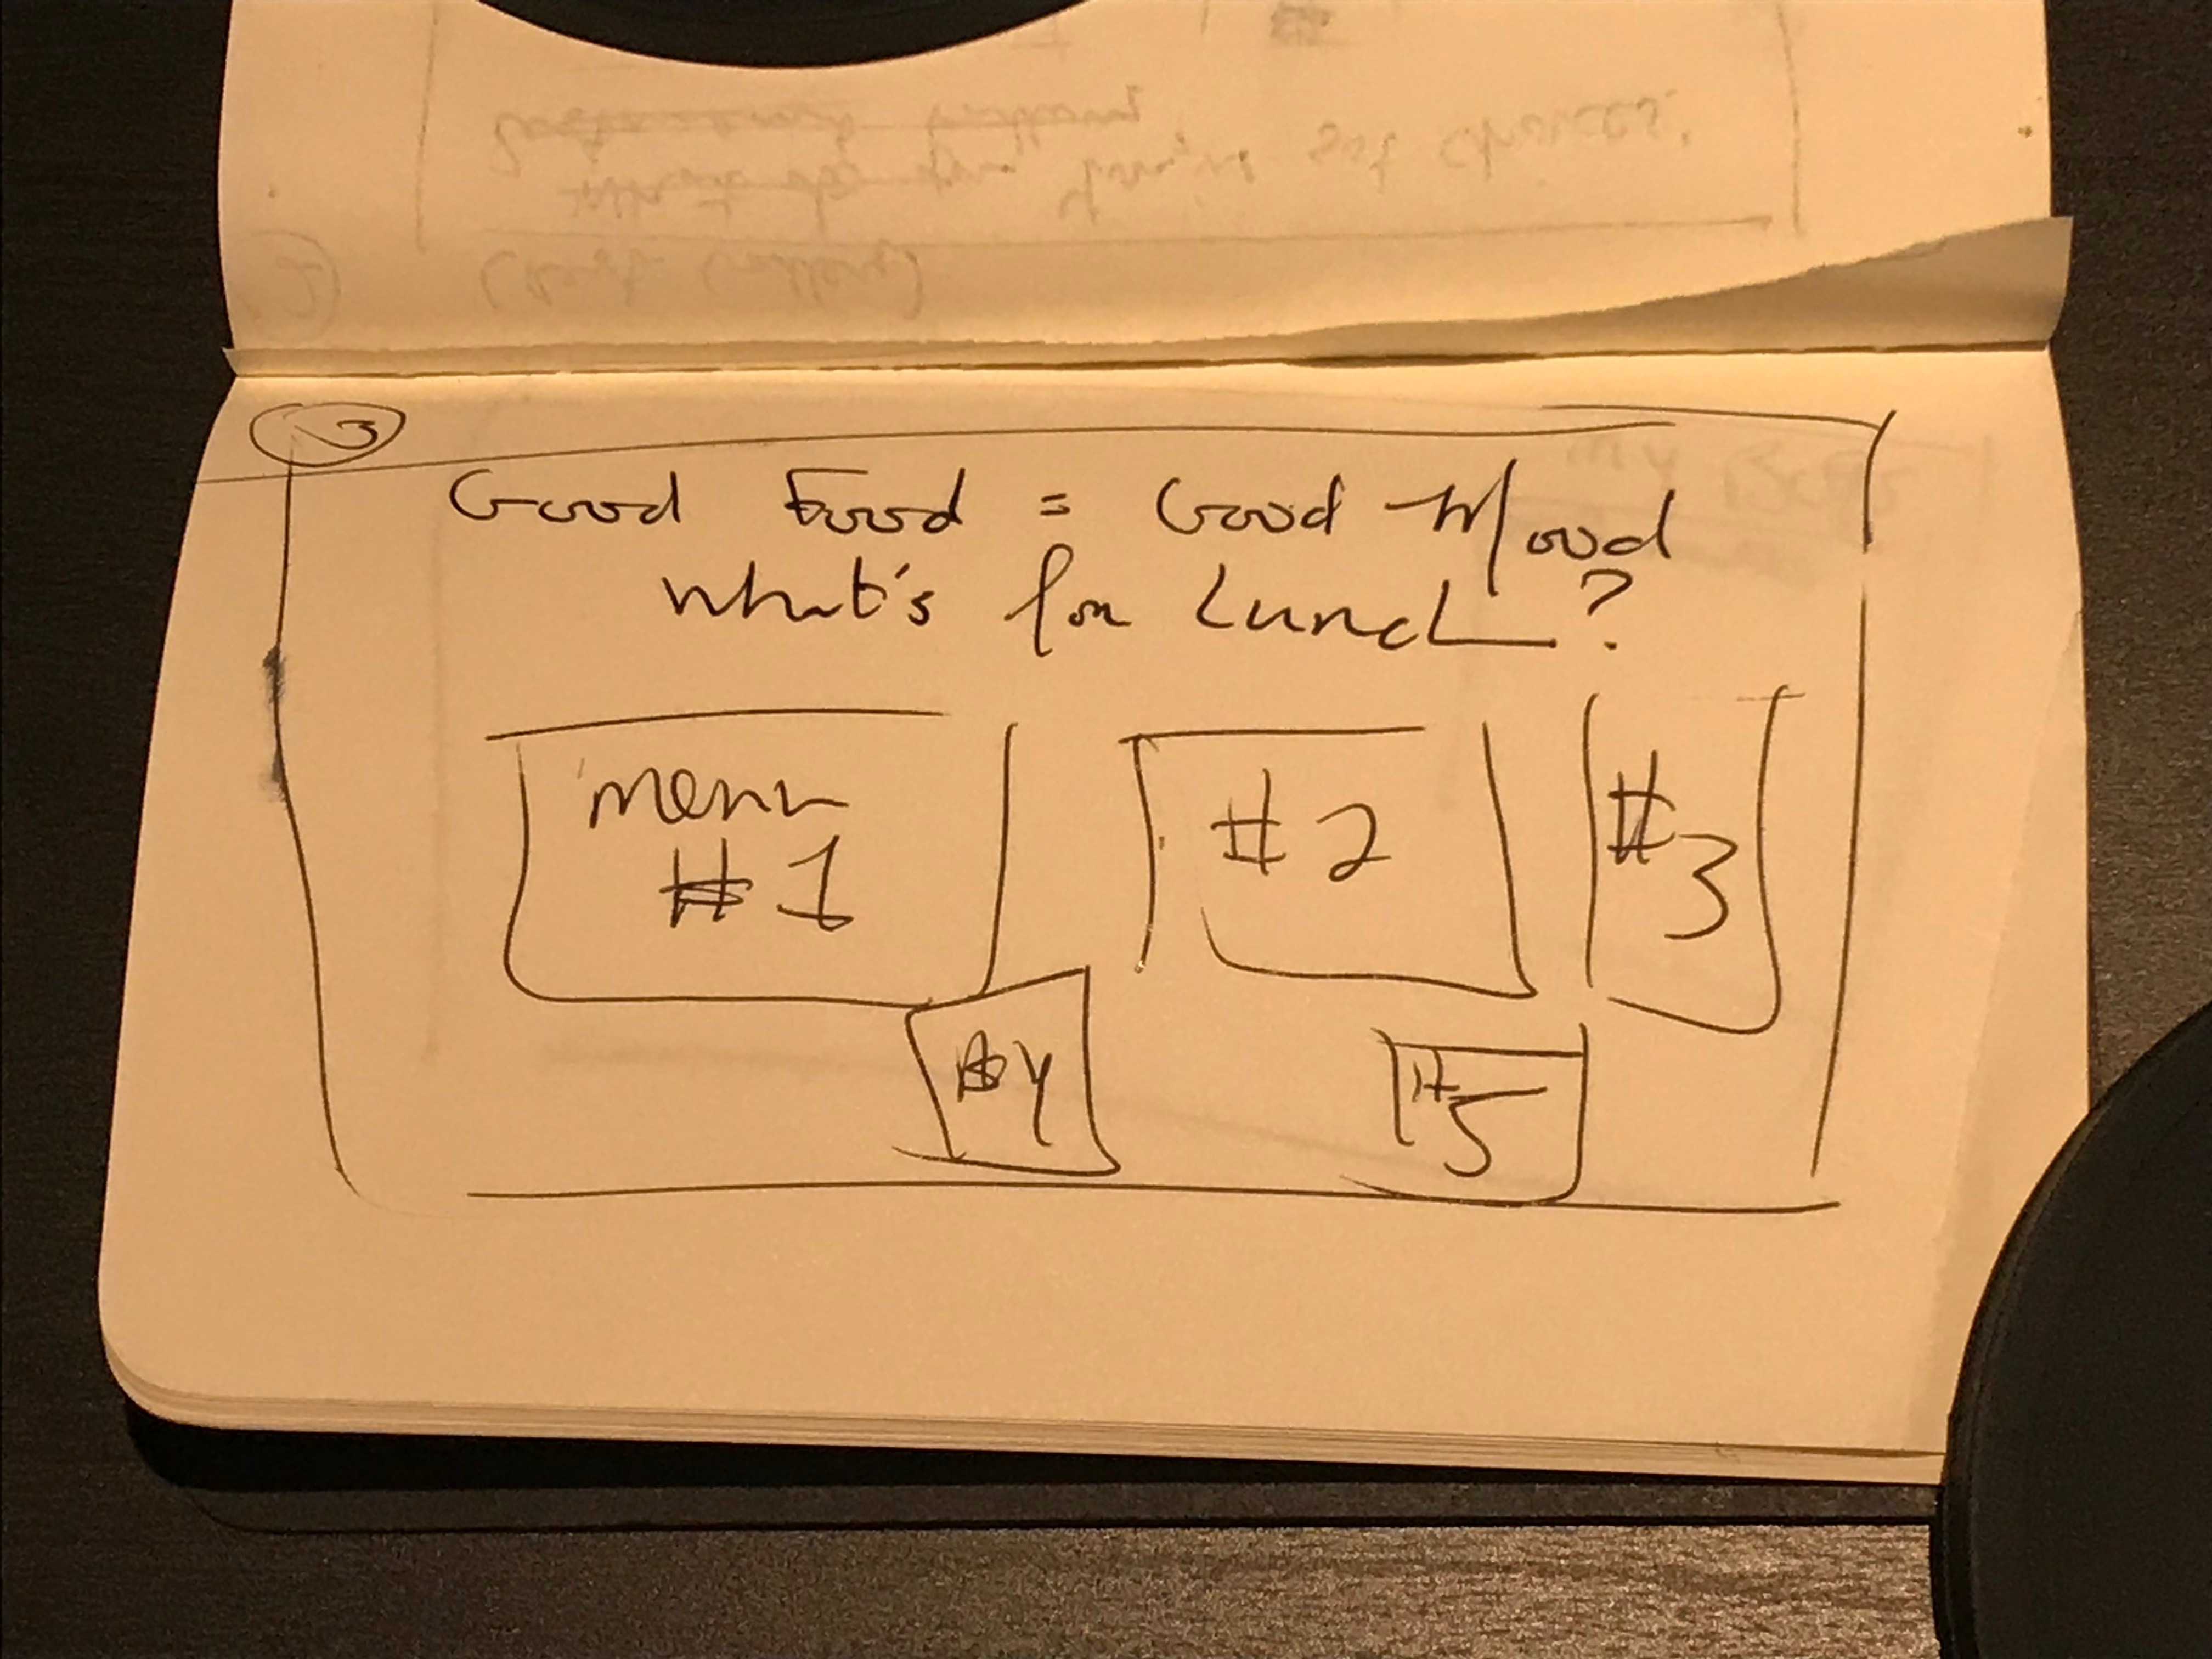 3
Good Food = Good Mood
What's for Lunch?
menu
#1
#2
#3
#4
#5